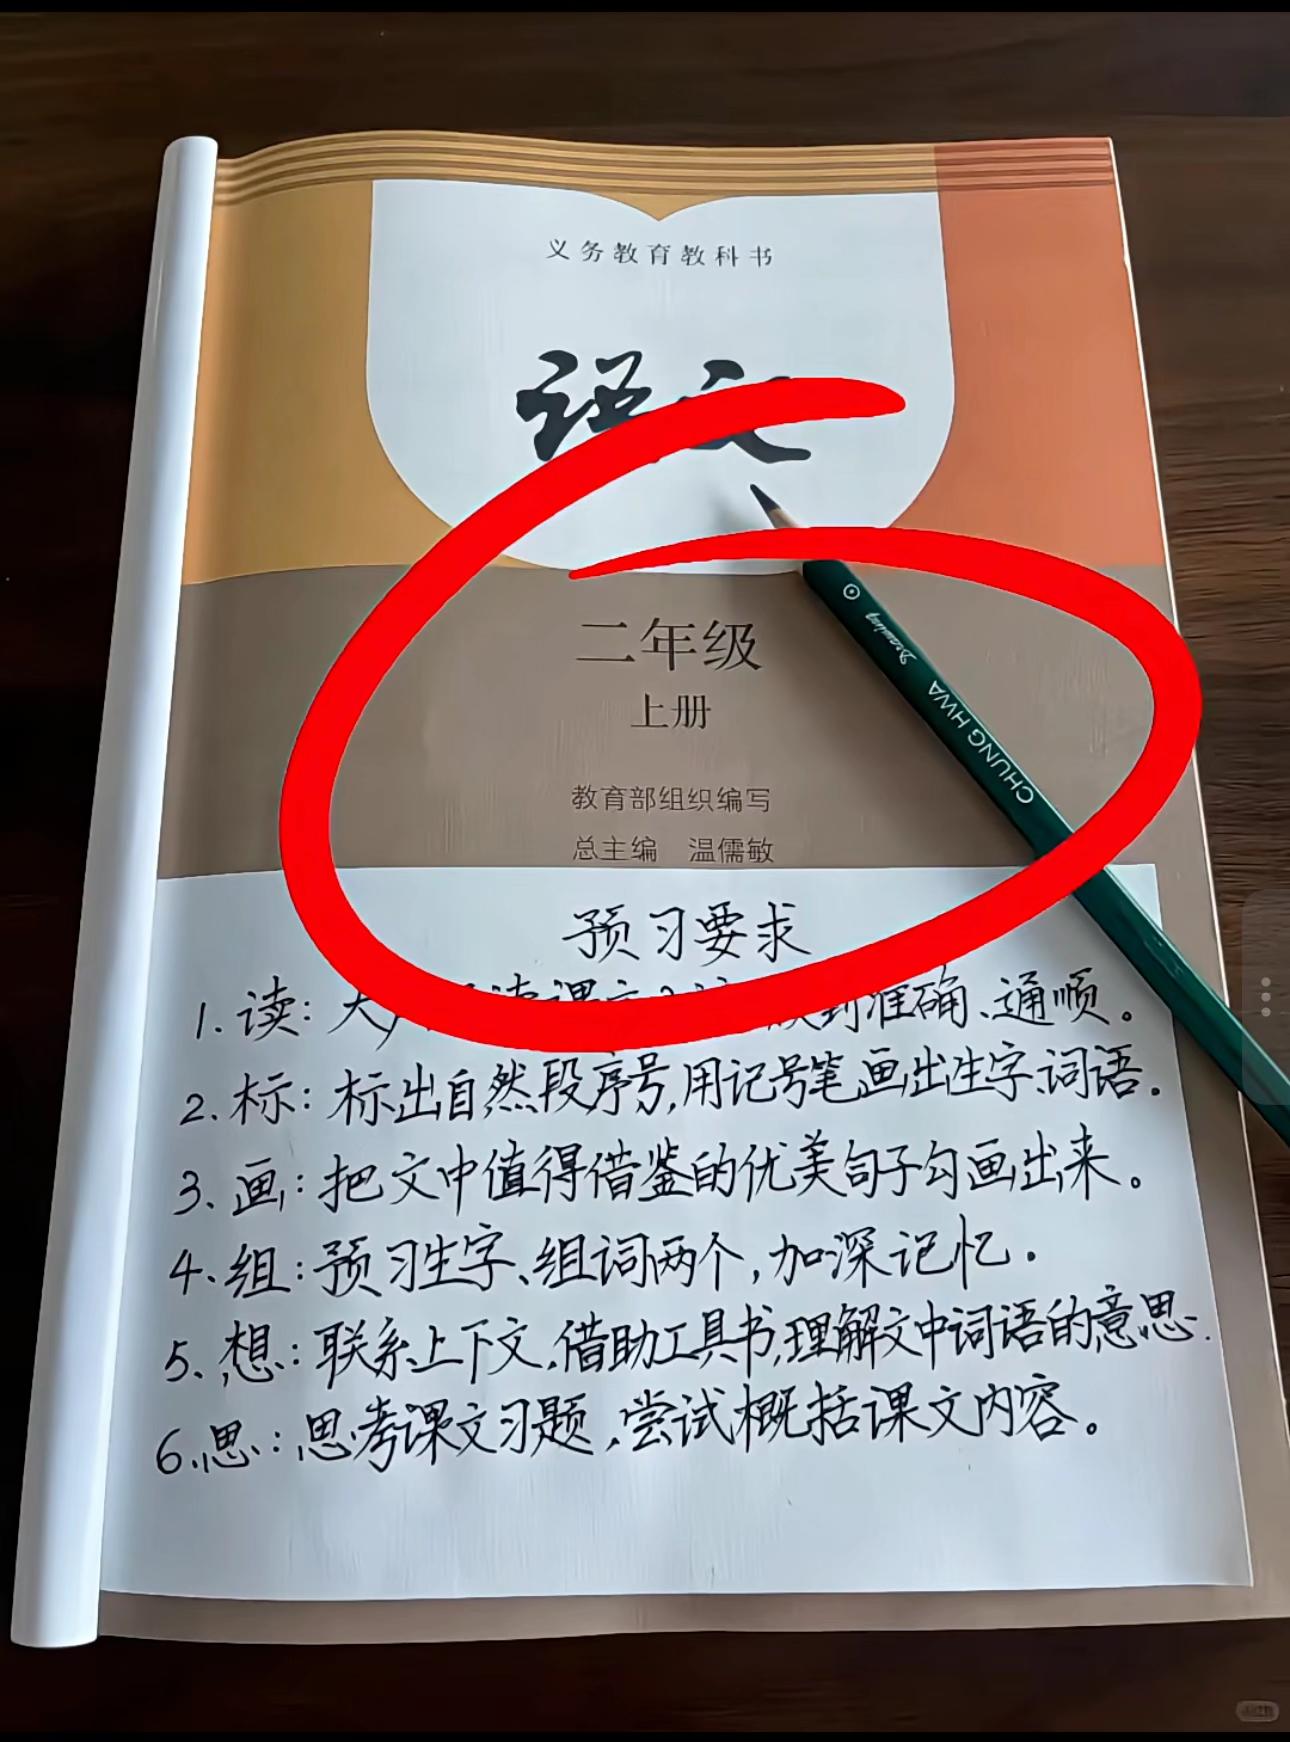 义务教育教科书
语文
二年级
上册
教育部组织编写
总主编 温儒敏
Drawing
CHUNG HWA
预习要求
1.读:大 读课文 到准确、通顺。
2.标:标出自然段序号,用记号笔画出生字、词语。
3.画:把文中值得借鉴的优美句子勾画出来。
4.组:预习生字、组词两个,加深记忆。
5.想:联系上下文,借助工具书,理解文中词语的意思.
6.思:思考课文习题,尝试概括课文内容。